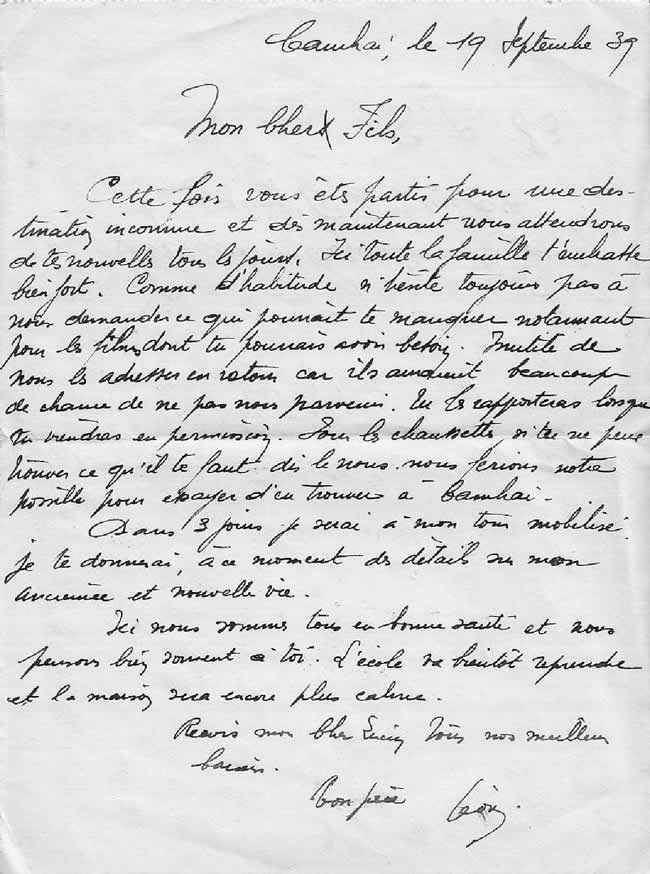 Cambrai, le 19 Septembre 39
Mon Cher Fils,
Cette fois vous êts partis pour une des-
tination inconnue et dès maintenant nous attendrons
de tes nouvelles tous les jours. Ici toute la famille t'embrasse
bien fort. Comme d'habitude n'hésite toujours pas à
nous demander ce qui pourrait te manquer notamment
pour les films dont tu pourrais avoir besoin. Inutile de
nous les adresser en retour car ils auraient beaucoup
de chance de ne pas nous parvenir. Tu les rapporteras lorsque
tu viendras en permission. Pour les chaussettes si tu ne peux
trouver ce qu'il te faut dis le nous. nous ferions notre
possible pour essayer d'en trouver à Cambrai -
Dans 3 jours je serai à mon tour mobilisé.
je te donnerai, à ce moment des détails sur mon
ancienne et nouvelle vie.
Ici nous sommes tous en bonne santé et nous
pensons bien souvent à toi. L'école va bientôt reprendre
et la maison sera encore plus calme.
Reçois mon Cher Lucien tous nos meilleurs
baisers.
Ton père Léon.